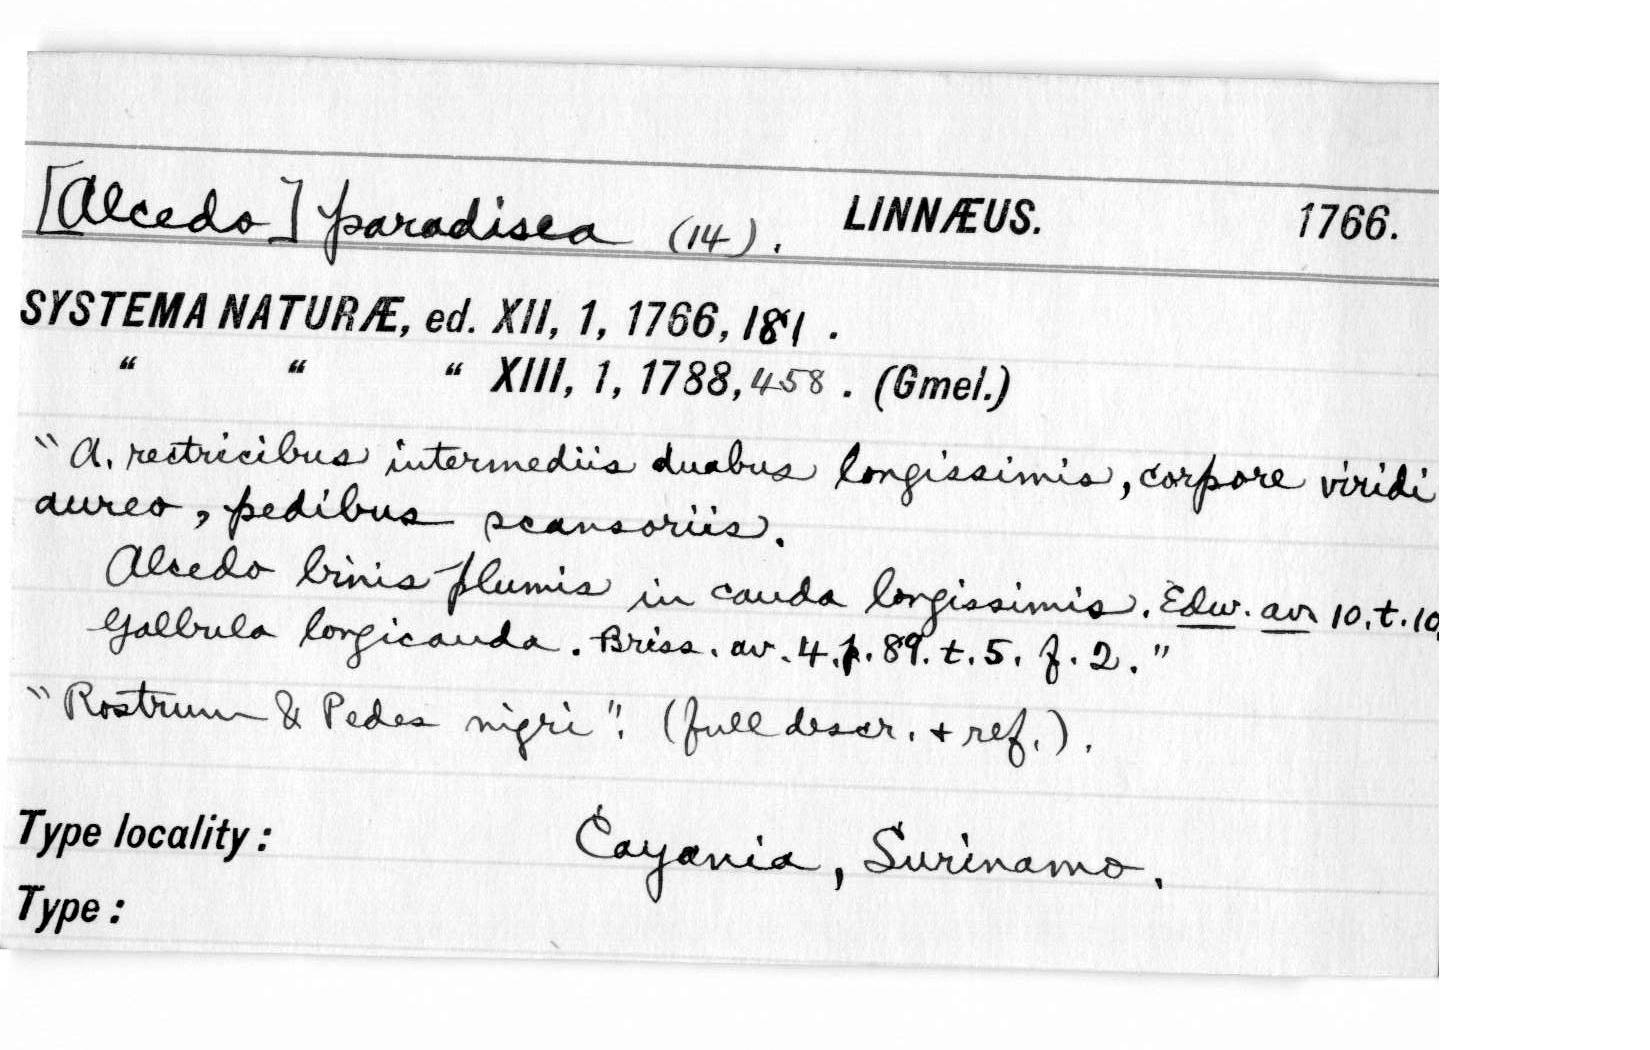 [Alcedo] paradisea (14). LINNÆUS. 1766.
SYSTEMA NATURÆ, ed. XII, 1, 1766, 181 .
“ “ “ XIII, 1, 1788, 458 . (Gmel.)
"A. rectricibus intermediis duabus longissimis, corpore viridi
aureo, pedibus scansoriis.
Alcedo binis plumis in cauda longissimis. Edw. av. 10. t. 10.
Galbula longicauda. Briss. av. 4. p. 89. t. 5. f. 2."
"Rostrum & Pedes nigri". (full descr. + ref.).
Type locality: Cayania, Surinamo.
Type: